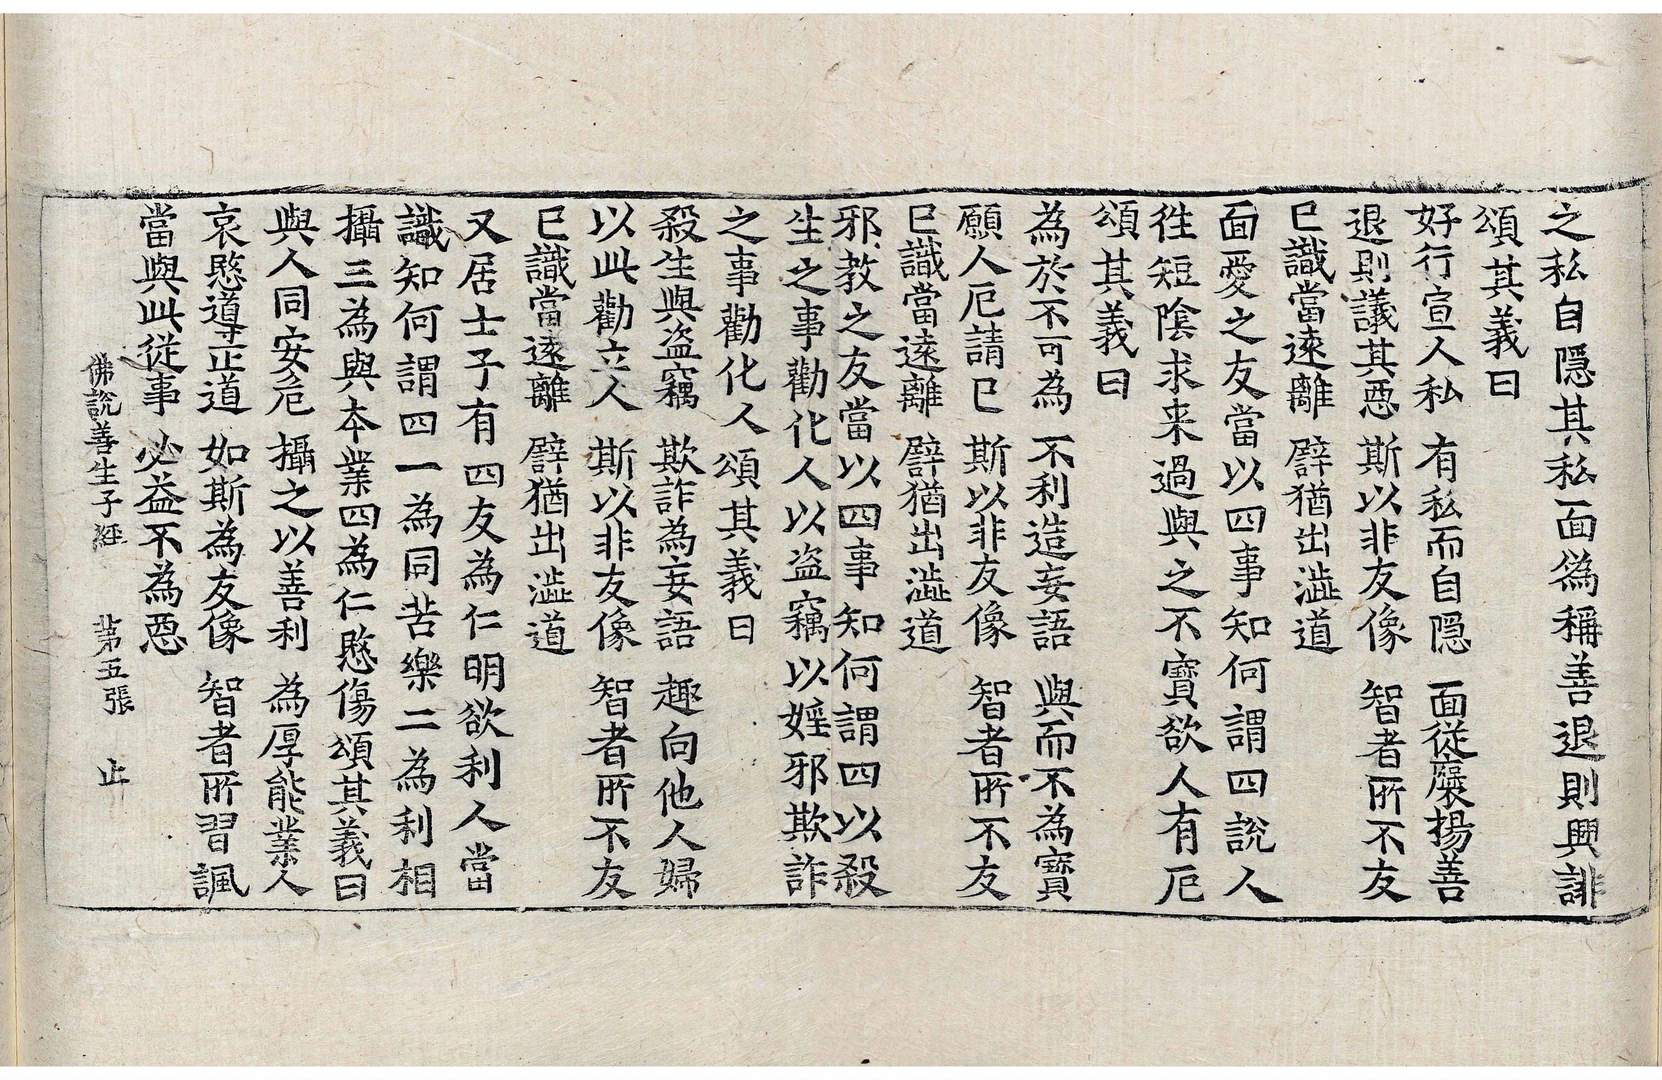 之私自隱其私面為稱善退則興誹
頌其義曰
好行宣人私　有私而自隱　面從褒揚善
退則議其惡　斯以非友像　智者所不友
已識當遠離　譬猶出澁道
面愛之友當以四事知何謂四說人
徃短陰求来過與之不寶欲人有厄
頌其義曰
為於不可為　不利造妄語　與而不為寶
願人厄請已　斯以非友像　智者所不友
已識當遠離　譬猶出澁道
邪教之友當以四事知何謂四以殺
生之事勸化人以盗竊以婬邪欺詐
之事勸化人頌其義曰
殺生與盗竊　欺詐為妄語　趣向他人婦
以此勸立人　斯以非友像　智者所不友
已識當遠離　譬猶出澁道
又居士子有四友為仁明欲利人當
識知何謂四一為同苦樂二為利相
攝三為與本業四為仁愍傷頌其義曰
與人同安危　攝之以善利　為厚能業人
哀愍道正道　如斯為友像　智者所習諷
當與此從事　必益不為惡
佛說善生子經　第五張　止